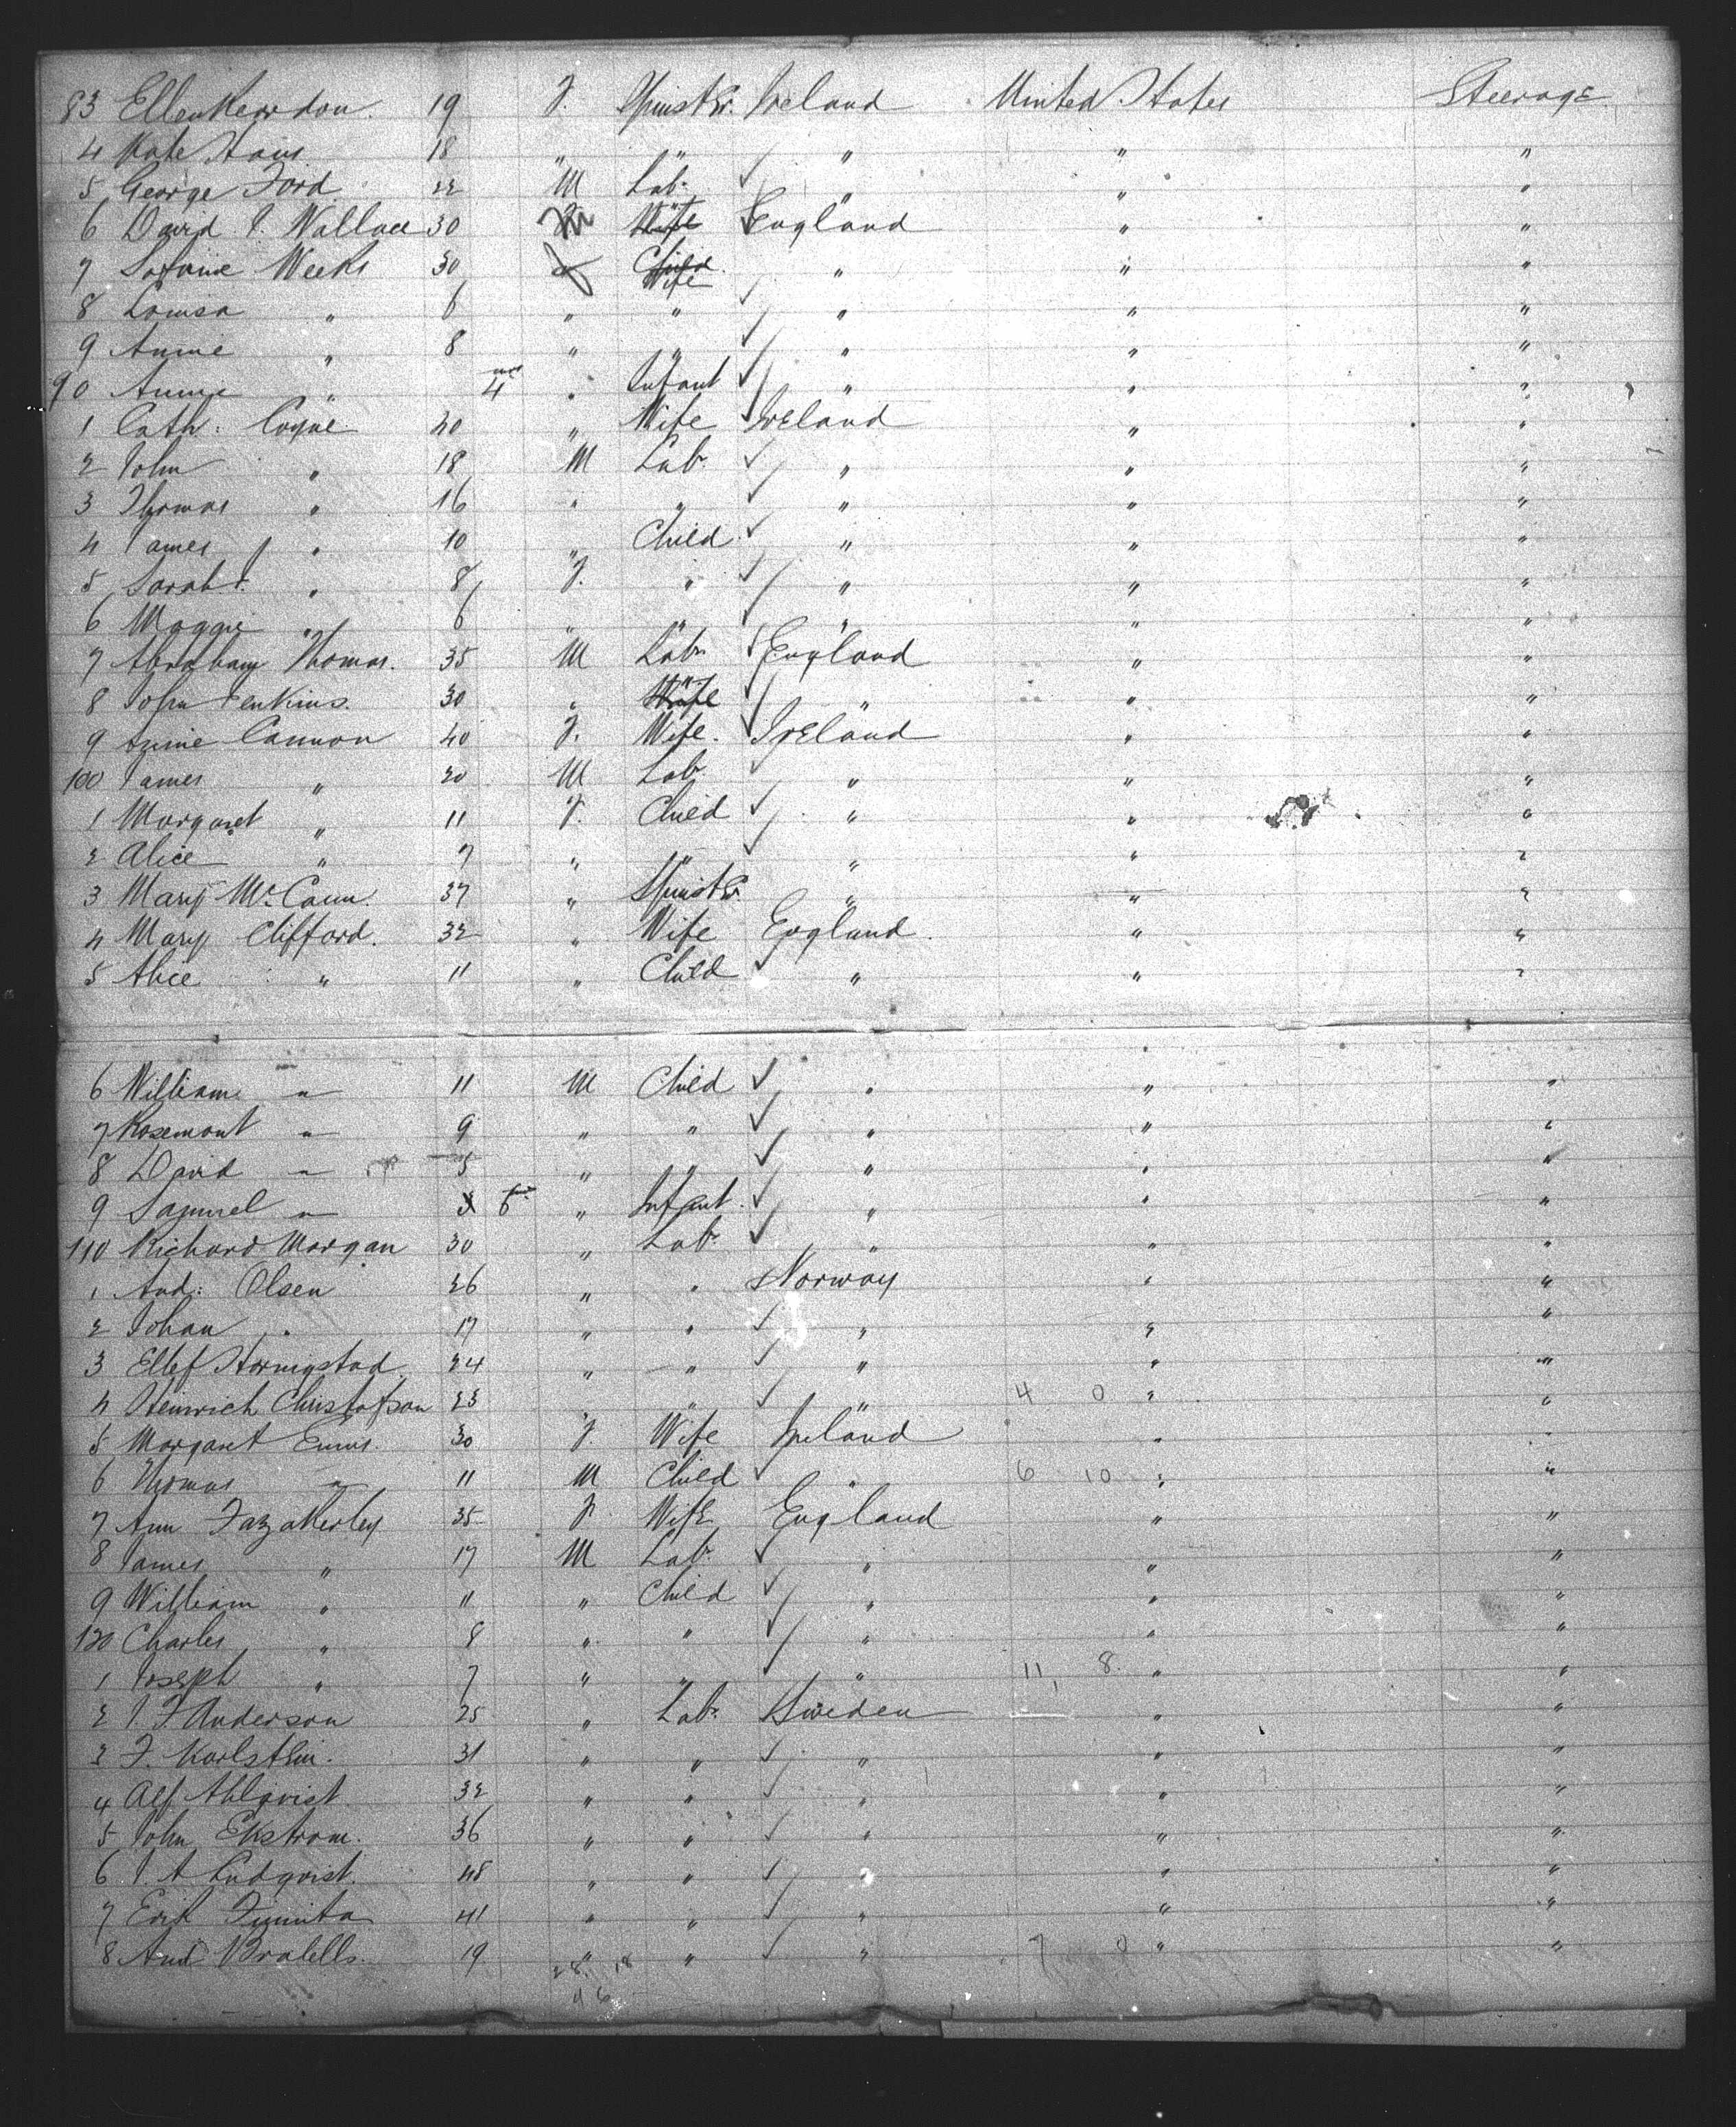 83 Ellen Reardon. 19 F. Spinstr. Ireland United States Steerage
4 Kate 18 " " " " "
5 George Ford 22 M Labr " " "
6 David J. Wallace 30 M England " "
7 Weeks 30 f Wife " " "
8 Louisa " 6 " " " " "
9 Annie " 8 " " " " "
90 Annie " 4 mos " Infant " " "
1 Cath: Coyne 40 " Wife Ireland " "
2 John " 18 M Labr " " "
3 Thomas " 16 " " " " "
4 James " 10 " Child " " "
5 Sarah " 8 F. " " " "
6 Maggie " 6 " " " " "
7 Abraham Thomas. 35 M Labr England " "
8 John Jenkins. 30 " " " " "
9 Annie Cannon 40 F. Wife. Ireland " "
100 James " 20 M Labr " " "
1 Margaret " 11 F. Child " " "
2 Alice " 7 " " " " "
3 Mary McCann. 37 " Spinstr. " " "
4 Mary Clifford. 32 " Wife England. " "
5 Alice " 11 " Child " " "
6 William " 11 M Child " " "
7 Rosemont " 9 " " " " "
8 David " 5 " " " " "
9 Samuel " 6 " Infant. " " "
110 Richard Morgan 30 " Labr " " "
1 And: Olsen 26 " " Norway " "
2 Johan " 17 " " " " "
3 Ellef 24 " " " " "
4 Heinrich Christofson 23 " " " 4 0 " "
5 Margaret Ennis. 30 F. Wife Ireland " "
6 Thomas " 11 M Child " 6 10 " "
7 Ann Fazakerley 35 F. Wife England " "
8 James " 17 M Labr " " "
9 William " 11 " Child " " "
120 Charles " 8 " " " " "
1 Joseph " 7 " " " 11 8 " "
2 J. F. Anderson 25 " Labr Sweden " "
3 F. 31 " " " " "
4 Alf Ahlqvist 32 " " " " "
5 John Ekstrom. 36 " " " " "
6 J. A Lindqvist. 48 " " " " "
7 Erik 41 " " " " "
8 And 19 " " " 7 0 " "
28 18
46